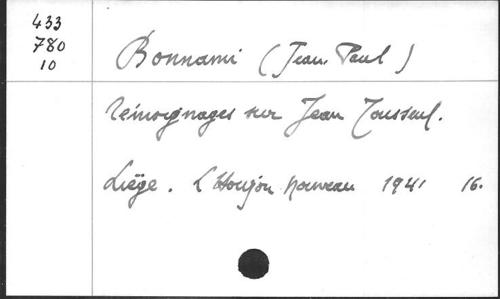 433
780
10
Bonnami (Jean-Paul)
Témoignages sur Jean Tousseul.
Liège. L'Horizon nouveau 1941 16.